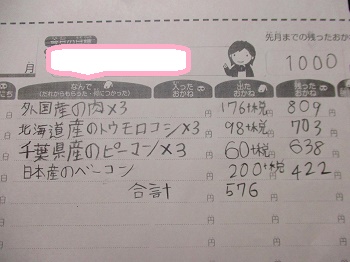 先月までの残ったおかね
月 1000
なんで 入ったおかね 出たおかね 残ったおかね
(だれからもらった・何につかった)
外国産の肉×3 円 176+税 円 809
北海道産のトウモロコシ×3 円 98+税 円 703
千葉県産のピーマン×3 円 60+税 円 638
日本産のベーコン 円 200+税 円 422
合計 円 576 円